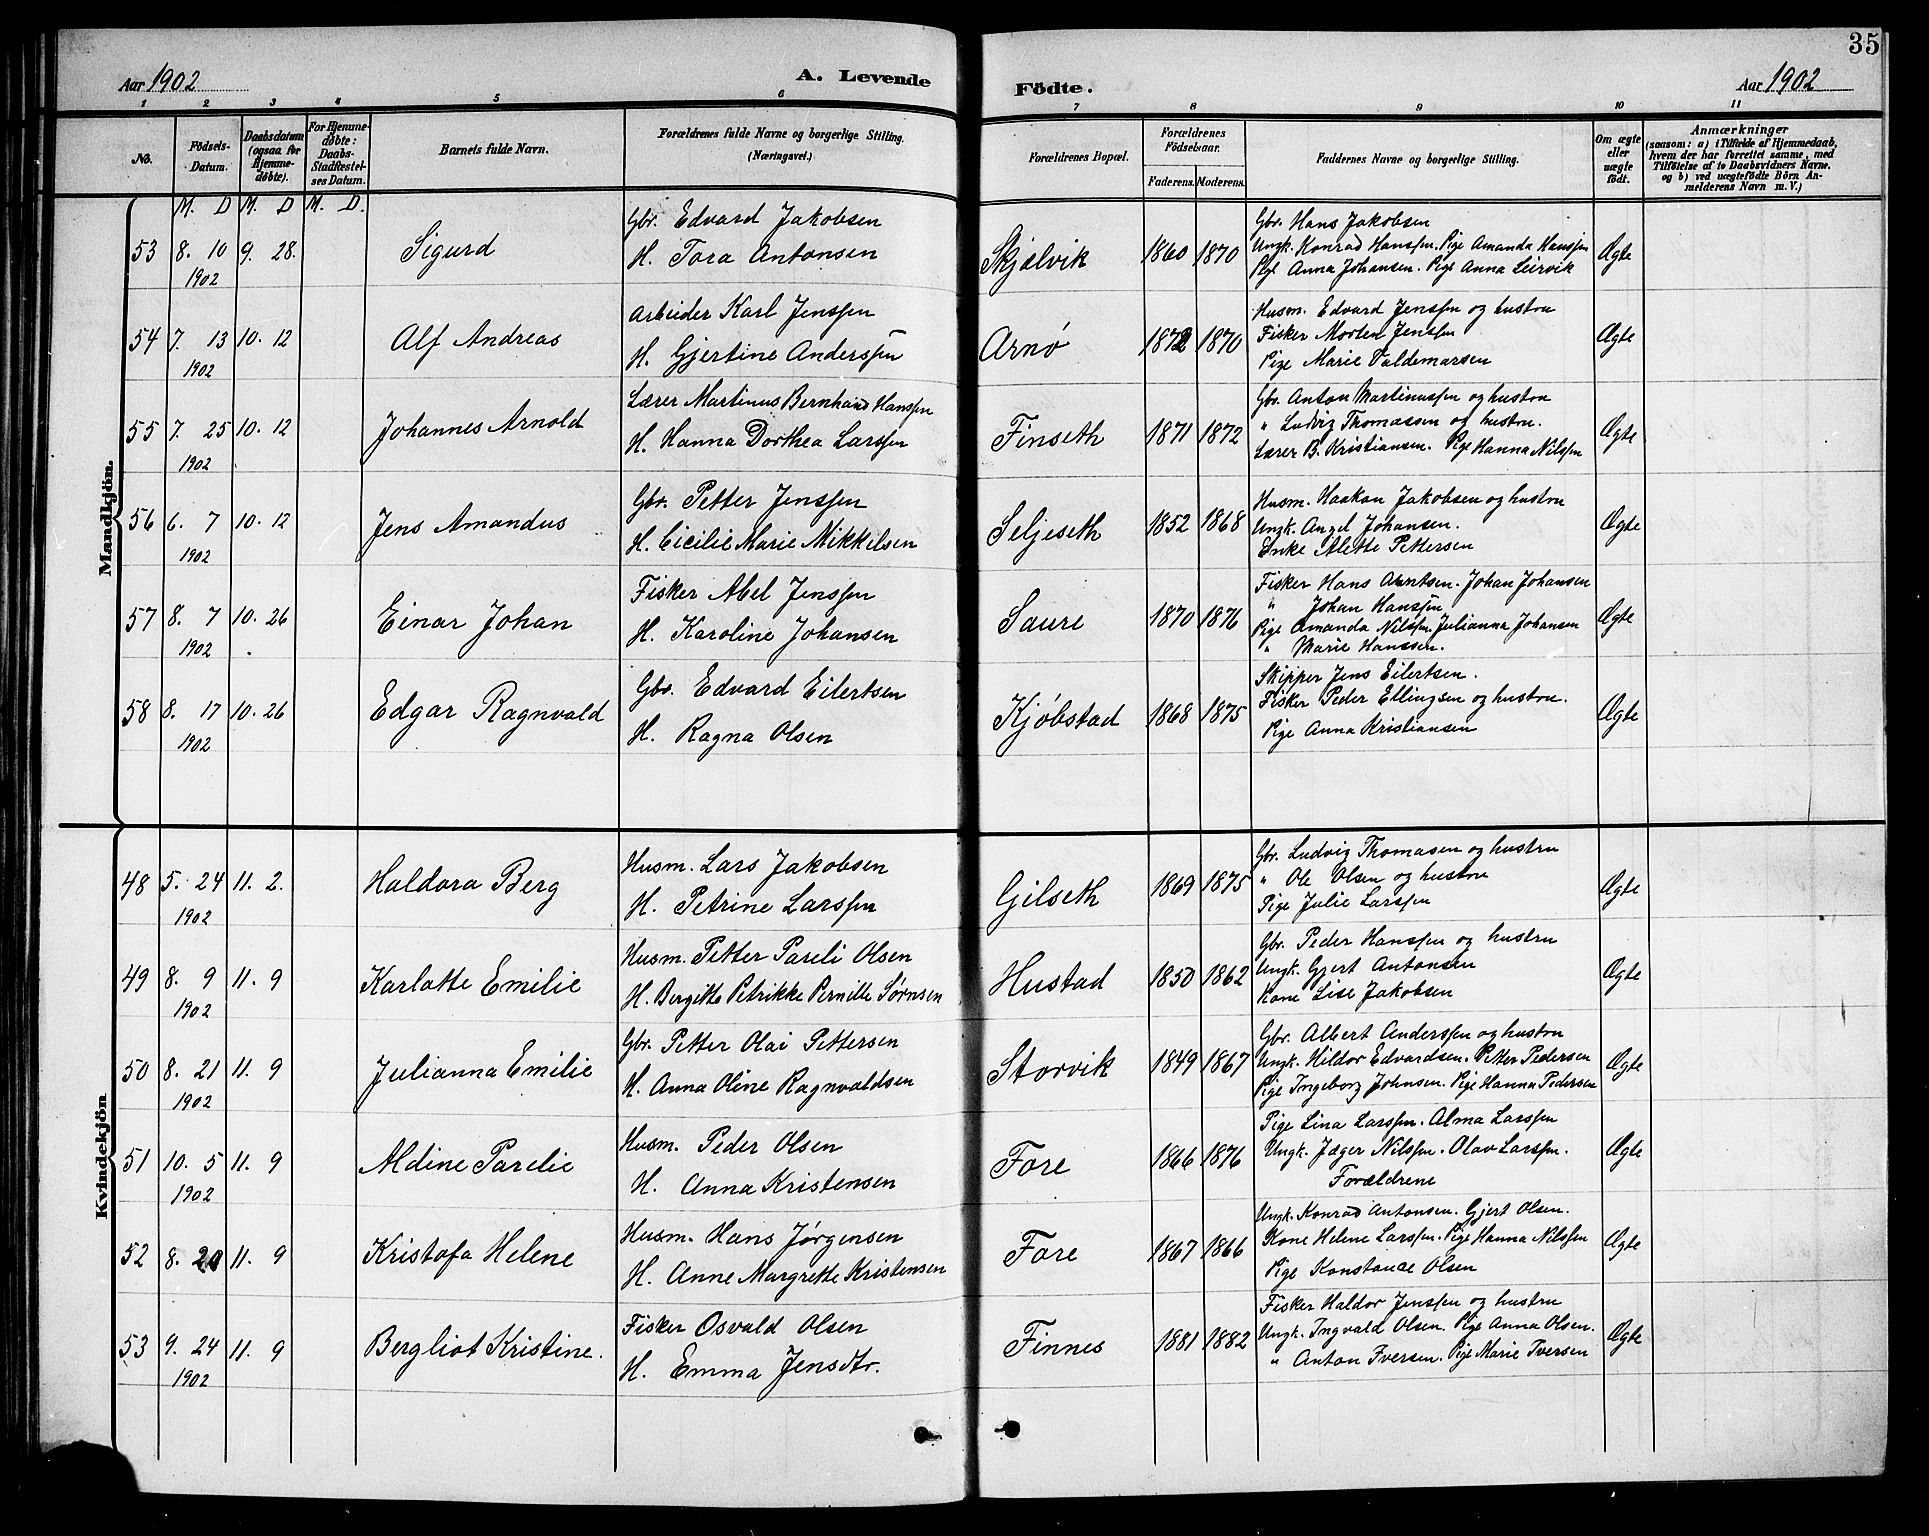 35
Aar 1902
A. Levende
Födte.
Aar 1902
1 2 3 4 5 6 7 8 9 10 11
No.
Födsels-
Datum.
Daabsdatum
(ogsaa for
Hjemme-
döbte).
For Hjemme-
döbte:
Daabs-
Stadfæstel-
ses Datum.
Barnets fulde Navn.
Forældrenes fulde Navne og borgerlige Stilling.
(Næringsvei.)
Forældrenes Bopæl.
Forældrenes
Födselsaar.
Faderens. Moderens.
Faddernes Navne og borgerlige Stilling.
Om ægte
eller
uægte
födt.
Anmærkninger
(saasom: a) i Tilfælde af Hjemmedaab,
hvem der har forrettet samme, med
Tilföielse af to Daabsvidners Navne,
og b) ved uægtefödte Börn An-
melderens Navn m. V.)
M. D M. D M. D.
Mandkjön.
53 8. 10 9. 28.
1902
Sigurd
Gbr. Edvard Jakobsen
H. Tora Antonsen
Skjælvik
1860 1870
Gbr. Hans Jakobsen
Ungk. Konrad Hanssen. Pige Amanda Hanssen
Pige Anna Johansen. Pige Anna Leirvik
Ægte
54 7. 13 10. 12
1902
Alf Andreas
Arbeider Karl Jenssen
H. Gjertine Anderssen
Arnø
1872 1870
Husm. Edvard Jenssen og hustru
Fisker Morten Jenssen
Pige Marie Valdemarsen
Ægte
55 7. 25 10. 12
1902
Johannes Arnold
Lærer Martinus Bernhard Hanssen
H. Hanna Dorthea Larssen
Finseth
1871 1872
Gbr. Anton Martinussen og hustru
" Ludvig Thomassen og hustru.
Lærer B. Kristiansen. Pige Hanna Nilssen
Ægte
56 6. 7 10. 12
1902
Jens Amandus
Gbr. Petter Jenssen
H. Cicilie Marie Mikkelsen
Seljeseth
1852 1868
Husm. Haakon Jakobsen og hustru
Ungk. Angel Johansen.
Enke Alette Pettersen
Ægte
57 8. 7 10. 26
1902
Einar Johan
Fisker Abel Jenssen
H. Karoline Johansen
Saure
1870 1876
Fisker Hans Arntsen. Johan Johansen
" Johan Hanssen
Pige Amanda Nilssen. Julianna Johansen
" Marie Hanssen.
Ægte
58 8. 17 10. 26
1902
Edgar Ragnvald
Gbr. Edvard Eilertsen
H. Ragna Olsen
Kjøbstad
1868 1875
Skipper Jens Eilertsen.
Fisker Peder Ellingsen og hustru.
Pige Anna Kristiansen
Ægte
Kvindekjön
48 5. 24 11. 2.
1902
Haldora Berg
Husm. Lars Jakobsen
H. Petrine Larssen
Gilseth
1869 1875
Gbr. Ludvig Thomasen og hustru
" Ole Olsen og hustru
Pige Julie Larssen
Ægte
49 8. 9 11. 9
1902
Karlotte Emilie
Husm. Petter Pareli Olsen
H. Bergitte Petrikke Pernille Sørnsen
Hustad
1850 1862
Gbr. Peder Hanssen og hustru
Ungk. Gjert Antonsen
Kone Lise Jakobsen
Ægte
50 8. 21 11. 9
1902
Julianna Emilie
Gbr. Petter Olai Pettersen
H. Anna Oline Ragnvaldsen
Storvik
1849 1867
Gbr. Albert Anderssen og hustru
Ungk. Hildor Edvardsen. Petter Pedersen
Pige Ingeborg Johnsen. Pige Hanna Pedersen
Ægte
51 10. 5 11. 9
1902
Aldine Parelie
Husm. Peder Olsen
H. Anna Kristensen
Fore
1866 1876
Pige Lina Larssen. Alma Larssen
Ungk. Jæger Nilssen. Olav Larssen.
Forældrene
Ægte
52 8. 20 11. 9
Kristofa Helene
Husm. Hans Jørgensen
H. Anne Margrette Kristensen
Fore
1867 1866
Ungk. Konrad Antonsen. Gjert Olsen.
Kone Helene Larssen. Pige Hanna Nilssen
Pige Konstance Olsen
Ægte
53 9. 24 11. 9
1902
Bergliot Kristine.
Fisker Osvald Olsen
H. Emma Jensdtr.
Finnes
1881 1882
Fisker Haldor Jenssen og hustru
Ungk. Ingvald Olsen. Pige Anna Olsen.
" Anton Iversen. Pige Marie Iversen
Ægte